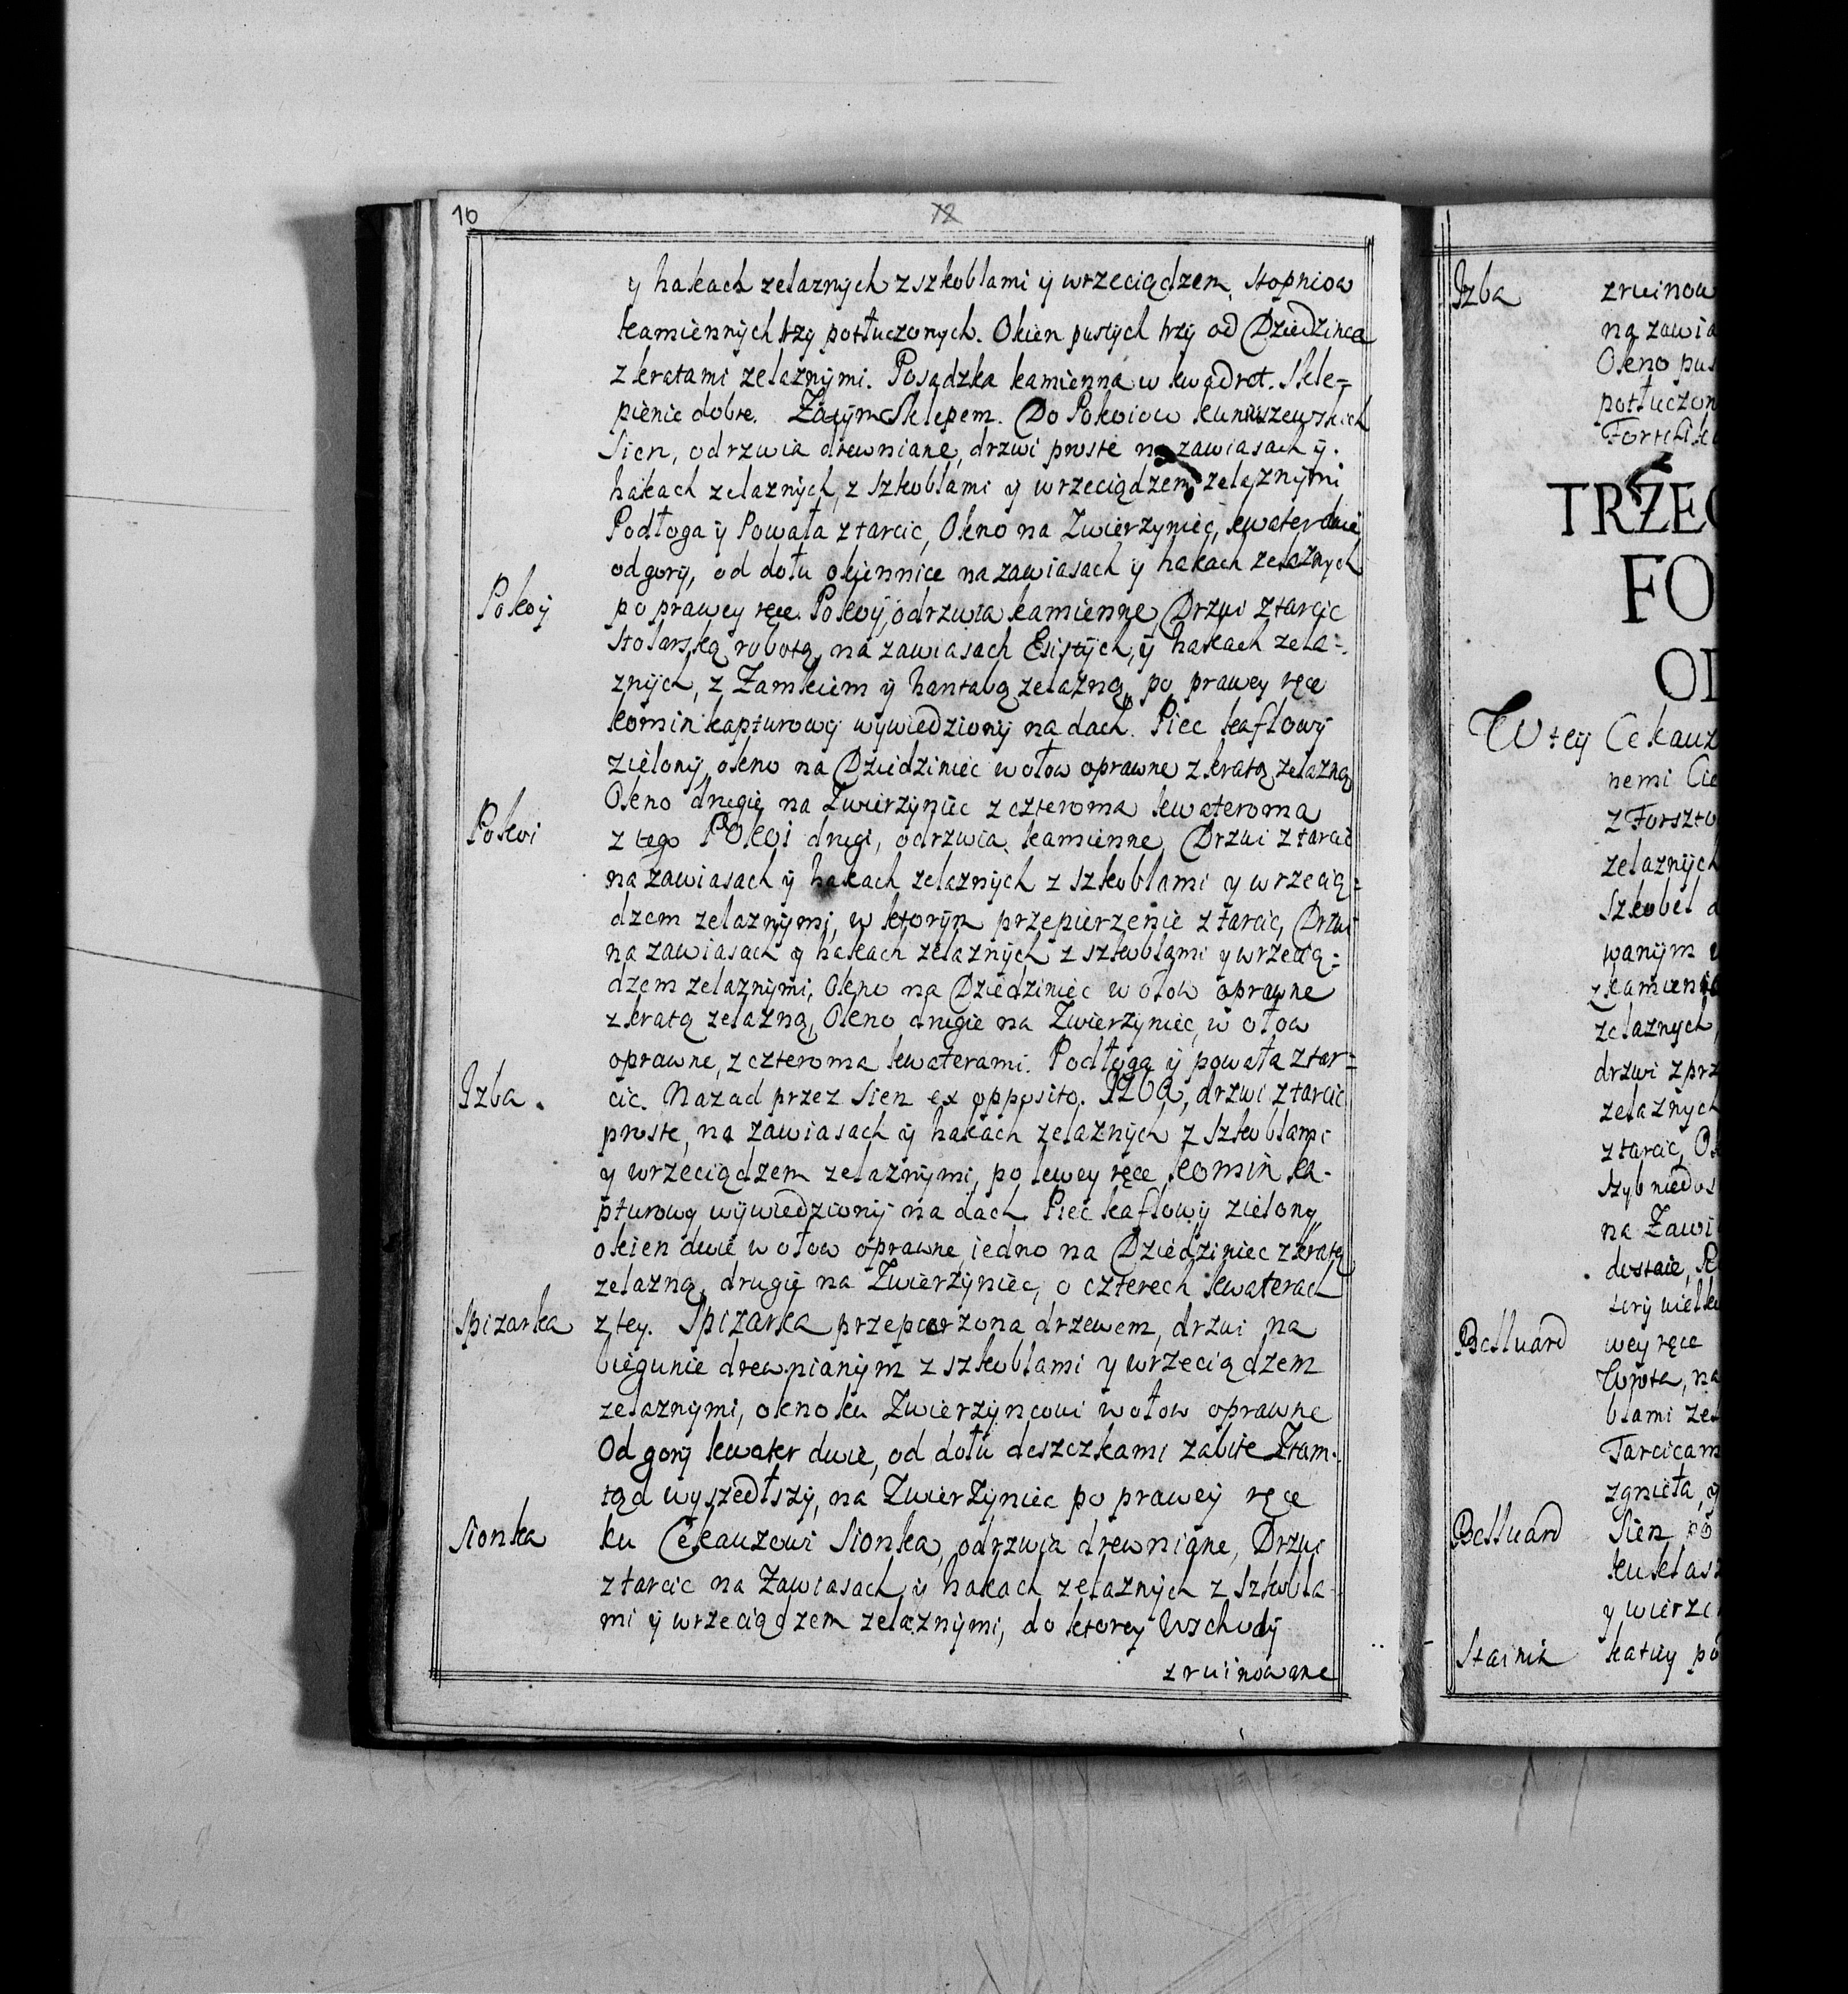 16
12
y hakach zelaznych z szkoblami y wrzeciądzem, stopniow
kamiennych trzy potłuczonych. Okien pustych trzy od Dziedzinca
z kratami zelaznymi. Posadzka kamienna w kwadrat. Skle=
pienie dobre. Sklepem. Do Pokoiow
Sien, odrzwia drewniane, drzwi proste na zawiasach y
hakach zelaznych, z szkoblami y wrzeciądzem zelaznymi
Podłoga y Powała z tarcic, Okno na Zwierzyniec, kwater dwie
od gory, od dołu okiennice na zawiasach y hakach zelaznych
Pokoy
po prawey ręce. Pokoy, odrzwia kamienne, Drzwi z tarcic
stolarską robotą na zawiasach Esistych, y hakach zela=
znych, z Zamkiem y hantabą zelazną, po prawey ręce
komin kapturowy wywiedziony na dach. Piec kaflowy
zielony, okno na Dziedziniec w ołow oprawne z kratą zelazną
Okno drugie na Zwierzyniec z czteroma kwateroma
Pokoi
z tego Pokoi drugi, odrzwia kamienne, Drzwi z tarcic
na zawiasach y hakach zelaznych z szkoblami y wrzecią=
dzem zelaznymi, w ktorym przepierzenie z tarcic, Drzwi
na zawiasach y hakach zelaznych z szkoblami y wrzecią=
dzem zelaznymi, Okno na Dziedziniec w ołow oprawne
z kratą zelazną, Okno drugie na Zwierzyniec, w ołow
oprawne, z czteroma kwaterami. Podłoga y powała z tar=
Izba.
cic. Nazad przez Sien ex opposito. Izba, drzwi z tarcic
proste, na zawiasach y hakach zelaznych z szkoblami
y wrzeciądzem zelaznymi, po lewey ręce komin ka=
pturowy wywiedziony na dach Piec kaflowy zielony
okien dwie w ołow oprawne, iedno na Dziedziniec z kratą
zelazną, drugie na Zwierzyniec, o czterech kwaterach
Spizarka
z tey. Spizarka przepierzona drzewem, drzwi na
biegunie drewnianym z szkoblami y wrzeciądzem
zelaznymi, okno ku Zwierzyncowi w ołow oprawne
Od gory kwater dwie, od dołu deszczkami zabite Ztam=
tąd wyszedłszy, na Zwierzyniec po prawey ręce
Sionka
ku Cekauzowi Sionka, odrzwia drewniane, Drzwi
z tarcic na Zawiasach y hakach zelaznych z szkobla=
mi y wrzeciądzem zelaznymi, do ktorey Wschody
zruinowane
Izba
zruinow
na zawia
Okno pus
potłuczon
TRZEC
FO
OD
W tey Cekauz
nemi
z Forszto
zelaznych
Szkobel
wanym
z kamienia
zelaznych,
drzwi z prz
zelaznych
z tarcic, O
szyb niedos
na Zawi
dostaie,
Belluard
wey ręce
Wrota, na
blami zel
Tarcicam
zgnieła, y
Belluard
Sien po
y wrzec